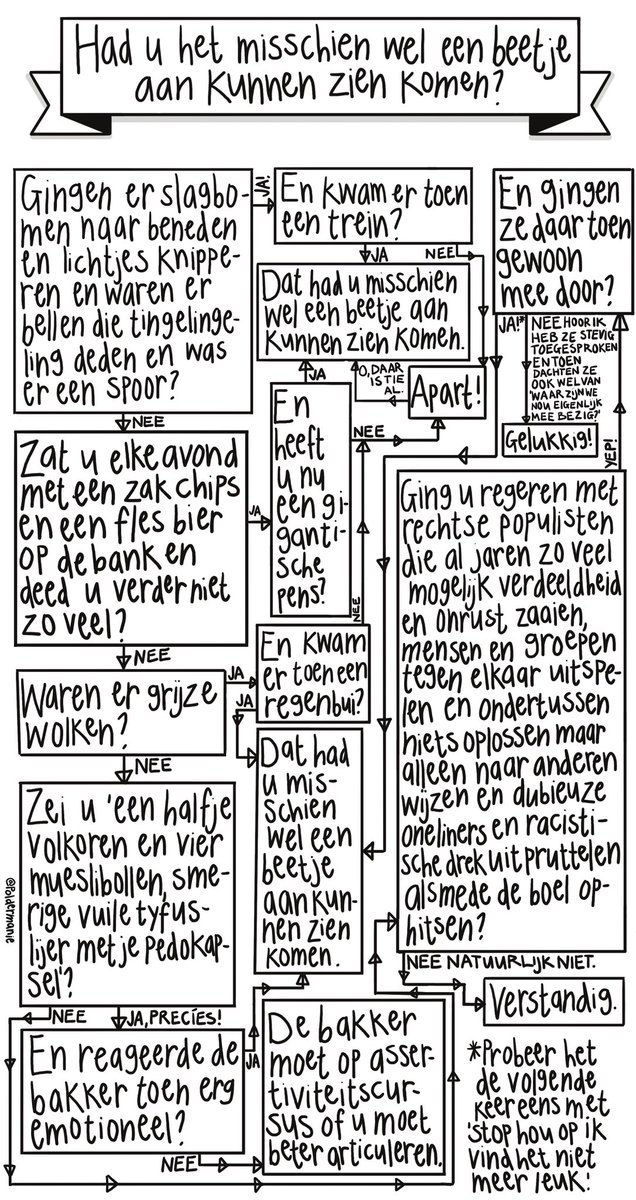 Had u het misschien wel een beetje
aan kunnen zien komen?
Gingen er slagbo-
men naar beneden
en lichtjes knippe-
ren en waren er
bellen die tingelinge-
ling deden en was
er een spoor?
JA!
En kwam er toen
een trein?
JA
NEE
Dat had u misschien
wel een beetje aan
kunnen zien komen.
O, DAAR
IS TIE
AL.
Apart!
NEE
Zat u elke avond
met een zak chips
en een fles bier
op de bank en
deed u verder niet
zo veel?
JA
En
heeft
u nu
een gi-
ganti-
sche
pens?
JA
NEE
NEE
Waren er grijze
wolken?
JA
En kwam
er toen een
regenbui?
NEE
JA
Dat had
u mis-
schien
wel een
beetje
aan kun-
nen zien
komen.
NEE
Zei u 'een halfje
volkoren en vier
mueslibollen, sme-
rige vuile tyfus-
lijer met je pedokap-
sel'?
NEE
JA, PRECIES!
En reageerde de
bakker toen erg
emotioneel?
JA
NEE
De bakker
moet op asser-
tiviteitscur-
sus of u moet
beter articuleren.
Ging u regeren met
rechtse populisten
die al jaren zo veel
mogelijk verdeeldheid
en onrust zaaien,
mensen en groepen
tegen elkaar uitspe-
len en ondertussen
niets oplossen maar
alleen naar anderen
wijzen en dubieuze
oneliners en racisti-
sche drek uitpruttelen
alsmede de boel op-
hitsen?
YEP!
NEE NATUURLIJK NIET.
Verstandig.
En gingen
ze daar toen
gewoon
mee door?
JA!*
NEE HOOR IK
HEB ZE STEVIG
TOEGESPROKEN
EN TOEN
DACHTEN ZE
OOK WEL VAN
'WAAR ZIJN WE
NOU EIGENLIJK
MEE BEZIG?'
Gelukkig!
*Probeer het
de volgende
keer eens met
'stop hou op ik
vind het niet
meer leuk!'
@Poldermanie